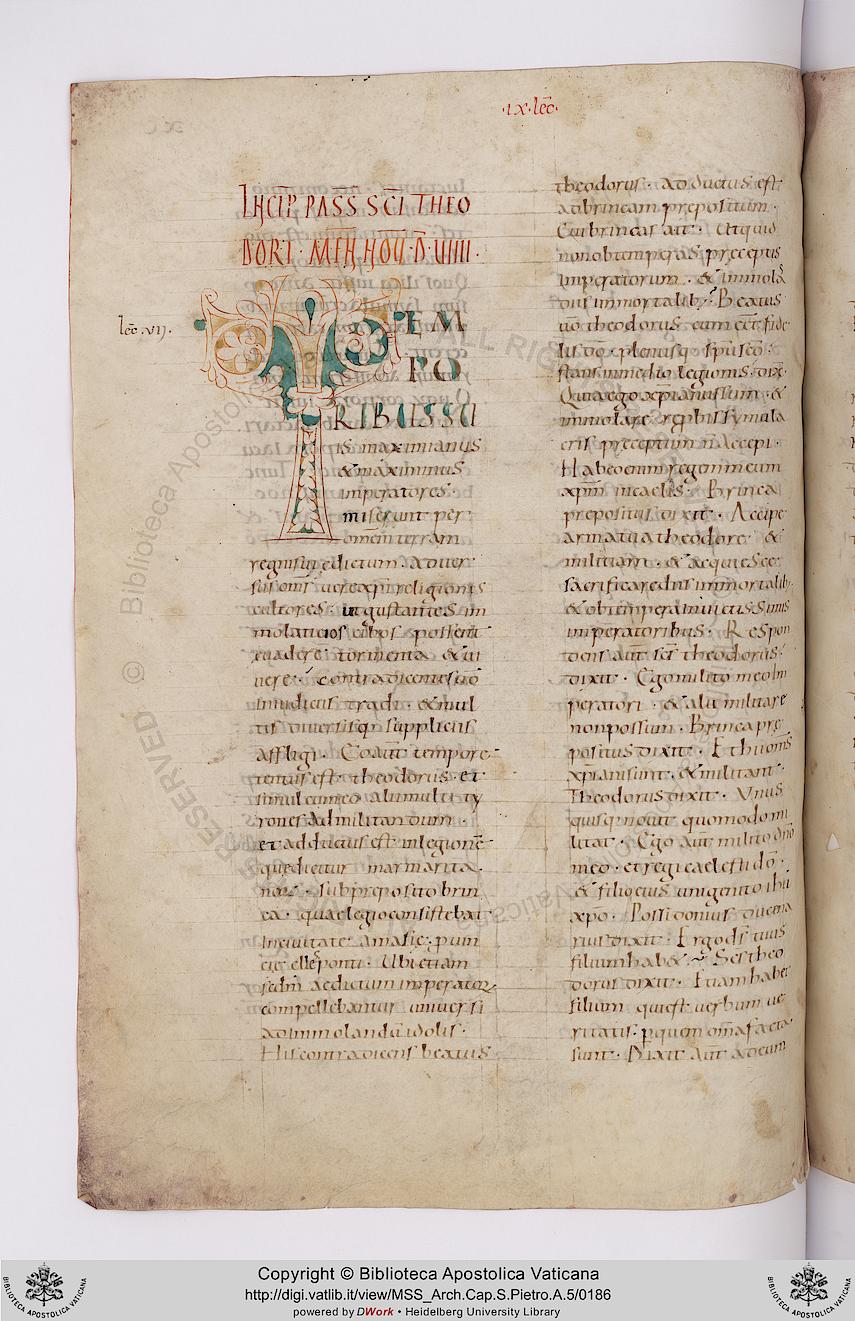 ·ix·lec̄·
INCIP̄ PASS̄ SC̄I THEO
DORI· M̄ N̄ NOU̅· D̄· VIIII·
lec̄· vij·
TEM
PO
RIBUS SU
is maximianus
& maximinus
imperatores·
miserunt per
omnem terram
regni sui edictum· aduer
sus om̄s uere xp̄i religionis
cultores· ut gustantes im
molaticios cibos possent
euadere tormenta & ui
uere· contradicentes uō
iudiciis tradi· & mul
tis diuersisq; suppliciis
affligi· Eo aūt tempore
tentus est theodorus· et
simul cum eo alii multi ty
rones ad militandum·
et adductus est in legionē
que dicitur marmarita
sub preposito brin
ca· quae legio consistebat
in ciuitate amasie· pon
elles ponti· Ubi etiam
sedm̄ aedictum imperator
compellebantur uniuersi
ad immolandū idolis·
His contradicens beatus
theodorus· adductus est
ad brincam prepositum·
Cui brincas ait· Ut quid
non obtemperas preceptis
imperatorum· & immolas
diis immortalib;· Beatus
uō theodorus cum eēt fide
lis dō· plenusq; spū scō·
stans in medio legionis· dix̄·
Quia ego xp̄ianus sum· &
immolare regib; simula
cris preceptum n̄ accepi·
Habeo enim regem meum
xp̄m in caelis· Brinca
prepositus dixit· Accipe
arma tua theodore· &
militiam· & acquiesce
sacrificare diis immortalib;
& obtempera inuictissimis
imperatoribus· Respon
dens aūt scs̄ theodorus·
dixit· Ego milito meo im
peratori· & alii militare
non possum· Brinca pre
positus dixit· Et hii om̄s
xp̄iani sunt· & militant·
Theodorus dixit· Unus
quisq; nouit quomodo mi
litat· Ego aūt milito dn̄o
meo· et regi caelesti dō·
& filio eius unigenito ihū
xp̄o· Possidonius ducena
rius dixit· Ergo ds̄ tuus
filium hab&· Scs̄ theo
dorus dixit· Etiam habet
filium qui est uerbum ue
ritatis· p quem om̄a facta
sunt· Dixit aūt ad eum
Copyright © Biblioteca Apostolica Vaticana
http://digi.vatlib.it/view/MSS_Arch.Cap.S.Pietro.A.5/0186
powered by DWork • Heidelberg University Library